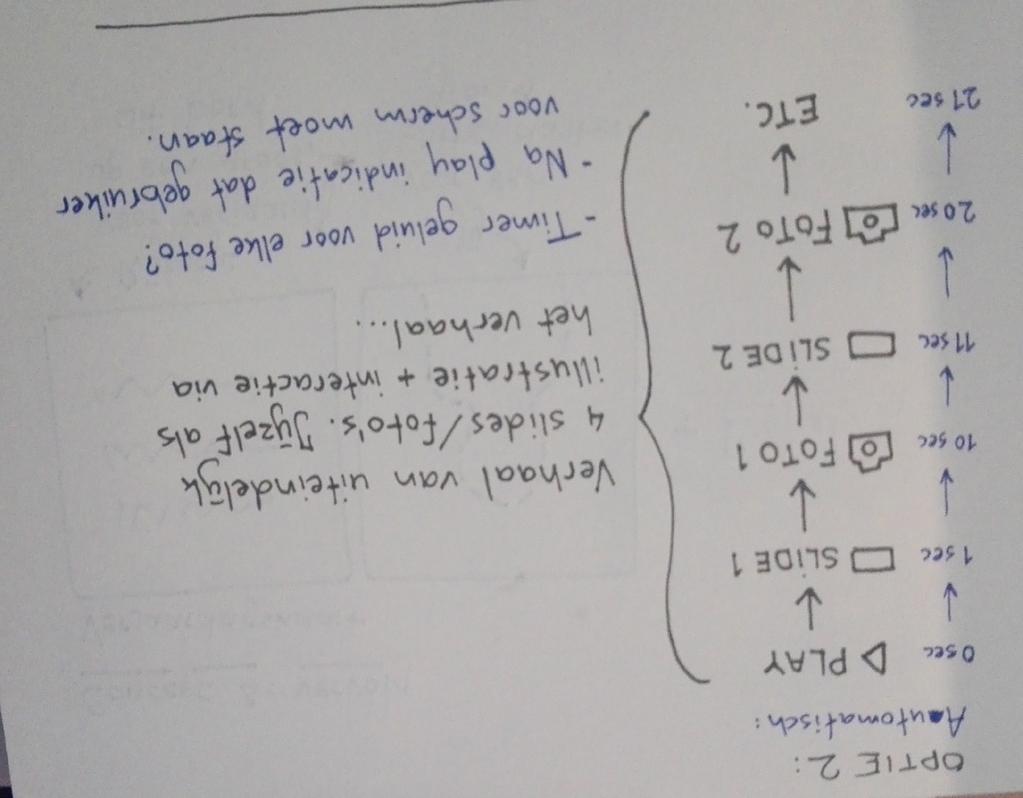 OPTIE 2:
Automatisch:
0 sec ▷ PLAY
1 sec SLIDE 1
10 sec FOTO 1
11 sec SLIDE 2
20 sec FOTO 2
21 sec ETC.
Verhaal van uiteindelijk
4 slides/foto's. Jijzelf als
illustratie + interactie via
het verhaal...
- Timer geluid voor elke foto?
- Na play indicatie dat gebruiker
voor scherm moet staan.